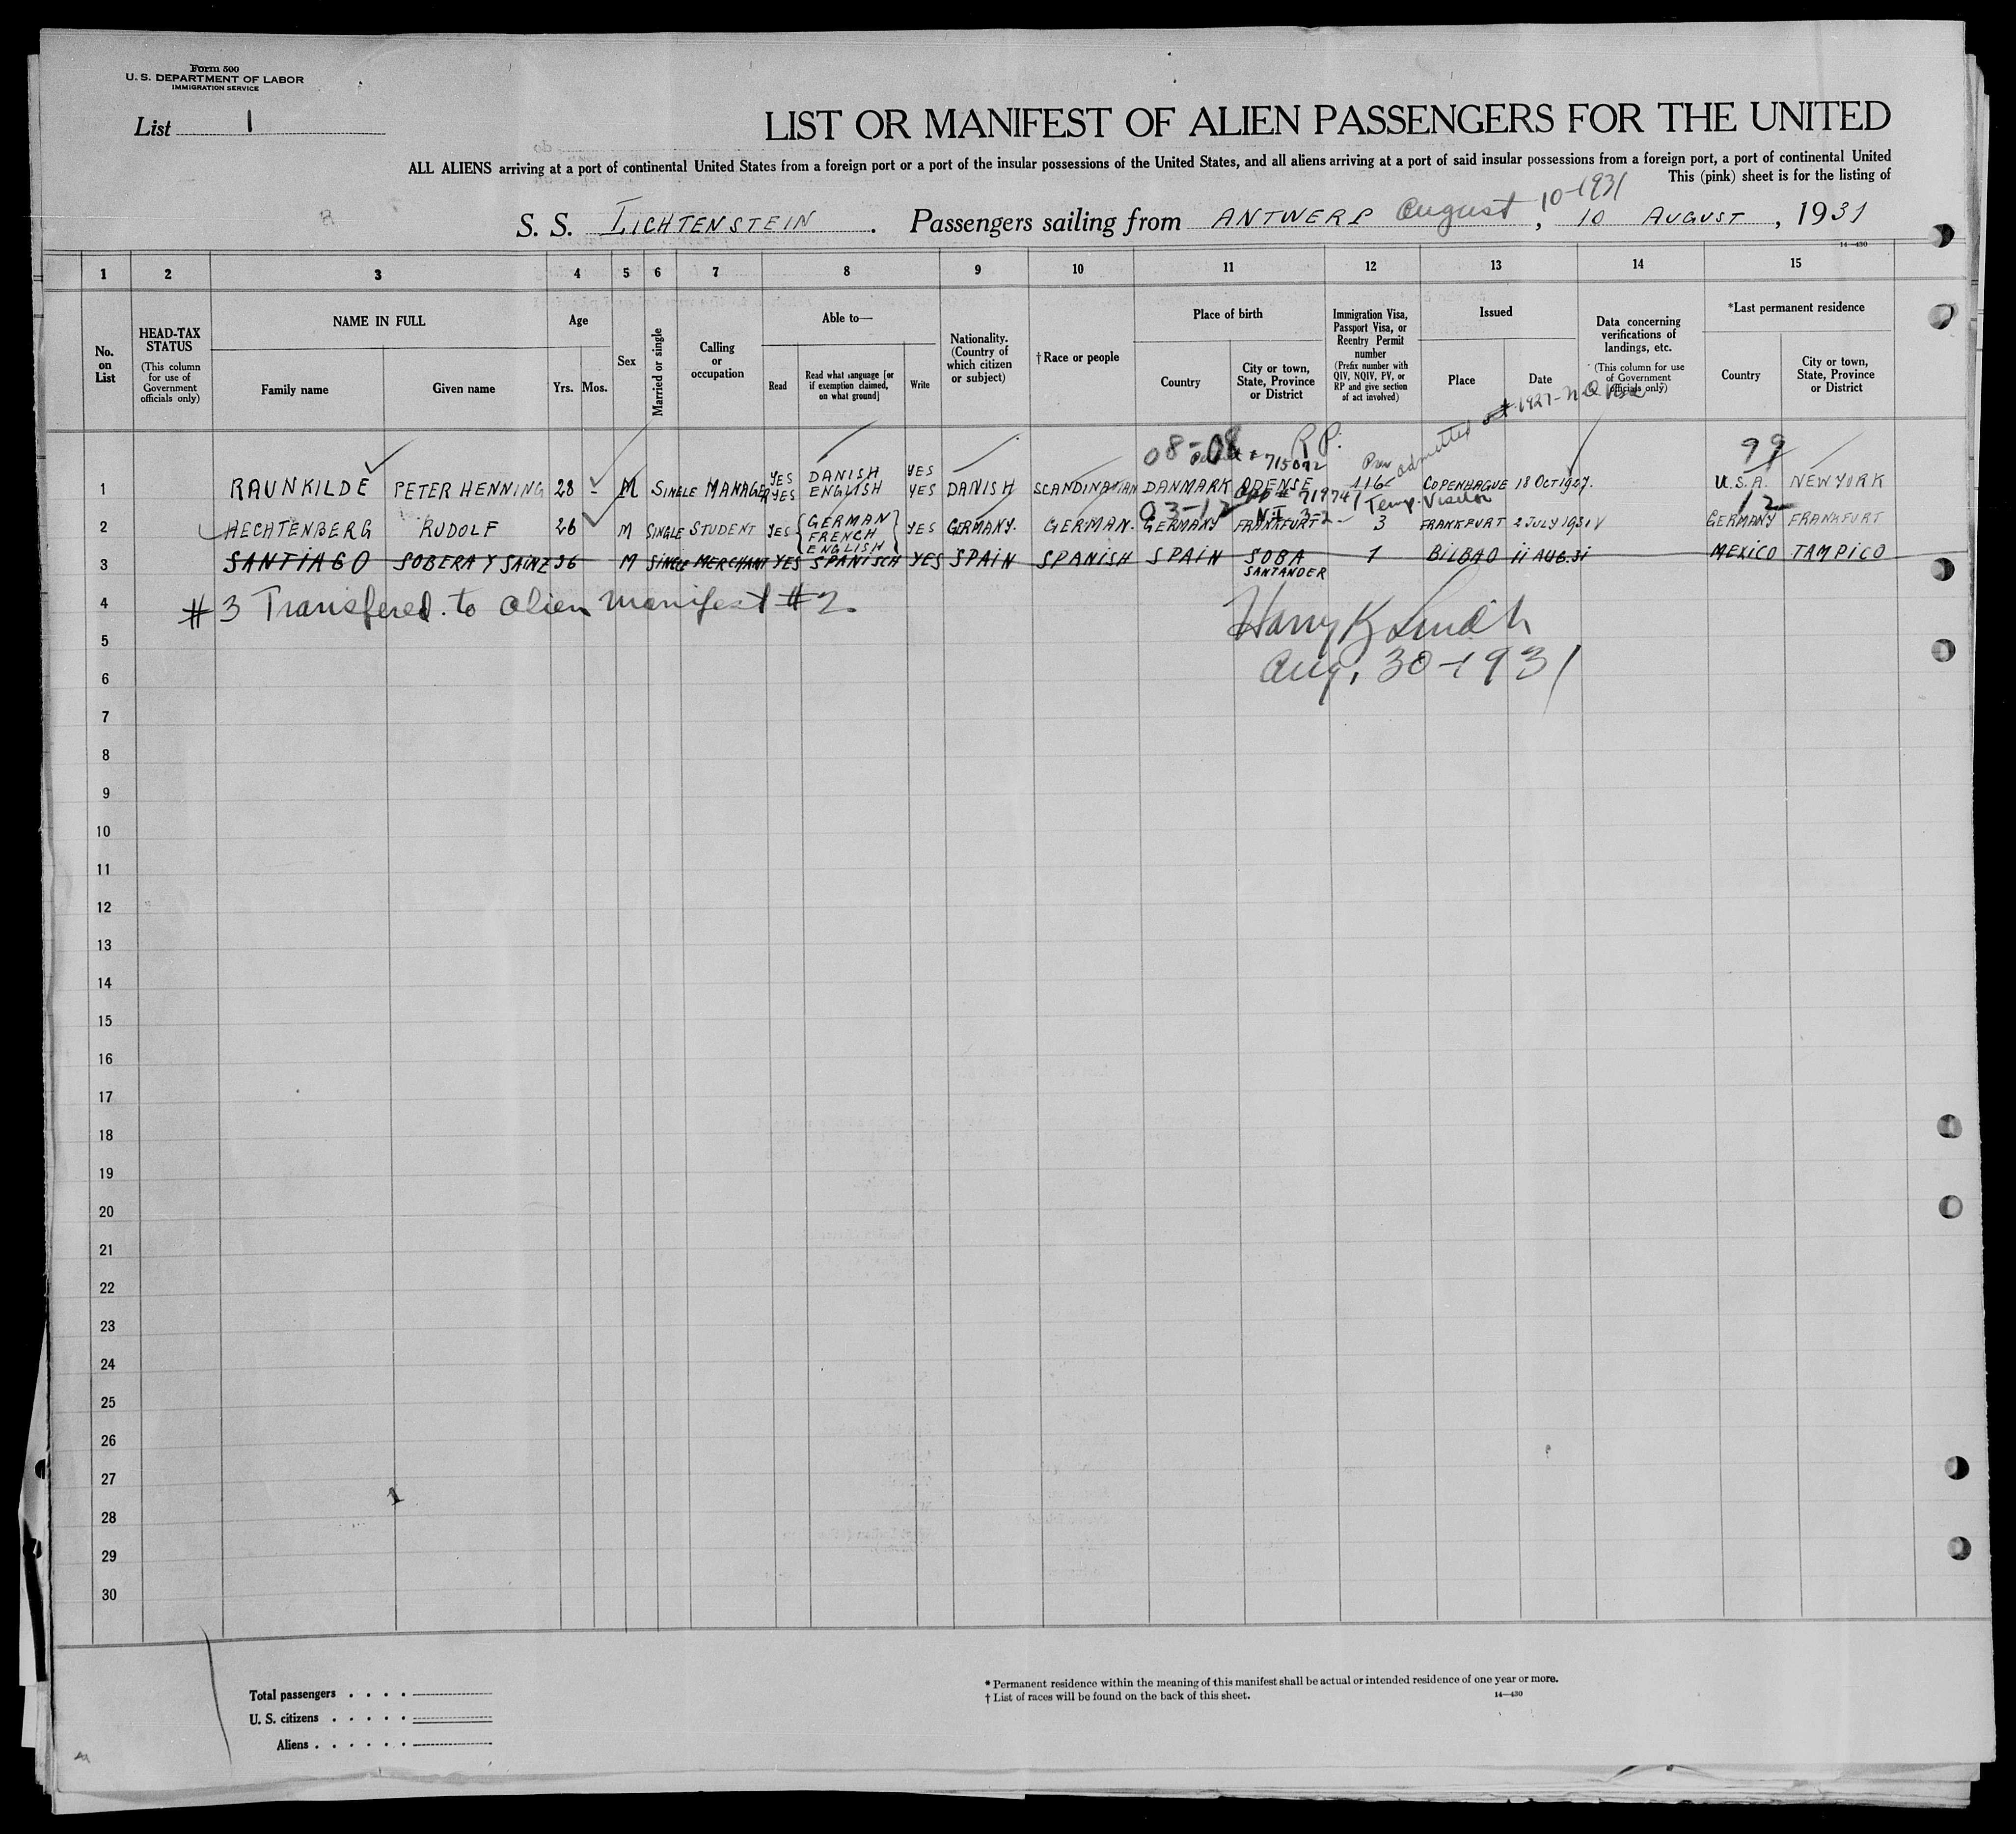 Form 500
U. S. DEPARTMENT OF LABOR
IMMIGRATION SERVICE
List 1
LIST OR MANIFEST OF ALIEN PASSENGERS FOR THE UNITED
ALL ALIENS arriving at a port of continental United States from a foreign port or a port of the insular possessions of the United States, and all aliens arriving at a port of said insular possessions from a foreign port, a port of continental United
This (pink) sheet is for the listing of
S. S. LICHTENSTEIN . Passengers sailing from ANTWERP August 10-1931, 10 AUGUST, 1931
14-430
1 2 3 4 5 6 7 8 9 10 11 12 13 14 15
No. on List
HEAD-TAX STATUS
(This column for use of Government officials only)
NAME IN FULL
Family name
Given name
Age
Yrs. Mos.
Sex
Married or single
Calling or occupation
Able to—
Read
Read what language [or if exemption claimed, on what ground]
Write
Nationality. (Country of which citizen or subject)
†Race or people
Place of birth
Country
City or town, State, Province or District
Immigration Visa, Passport Visa, or Reentry Permit number
(Prefix number with QIV, NQIV, PV, or RP and give section of act involved)
Issued
Place
Date
Data concerning verifications of landings, etc.
(This column for use of Government officials only)
*Last permanent residence
Country
City or town, State, Province or District
08-08 R P. 99
715092
admitted 1927-
1 RAUNKILDE PETER HENNING 28 - M SINGLE MANAGER YES YES DANISH ENGLISH YES YES DANISH SCANDINAVIAN DANMARK ODENSE 116 COPENHAGUE 18 OCT 1927. U.S.A. NEW YORK
03-12 Temp. Visitor 12
2 HECHTENBERG RUDOLF 26 M SINGLE STUDENT YES {GERMAN FRENCH ENGLISH} YES GERMANY. GERMAN. GERMANY FRANKFURT 3 FRANKFURT 2 JULY 1931 GERMANY FRANKFURT
3 SANTIAGO SOBERA Y SAINZ 36 M SINGLE MERCHANT YES SPANISCH YES SPAIN SPANISH SPAIN SOBA SANTANDER 1 BILBAO 11 AUG. 31 MEXICO TAMPICO
4 # 3 Transfered to alien manifest # 2
Harry K Smith
5
Aug. 30-1931
6
7
8
9
10
11
12
13
14
15
16
17
18
19
20
21
22
23
24
25
26
27
1
28
29
30
Total passengers . . . .
U. S. citizens . . . . .
Aliens . . . . . .
* Permanent residence within the meaning of this manifest shall be actual or intended residence of one year or more.
† List of races will be found on the back of this sheet.
14-430